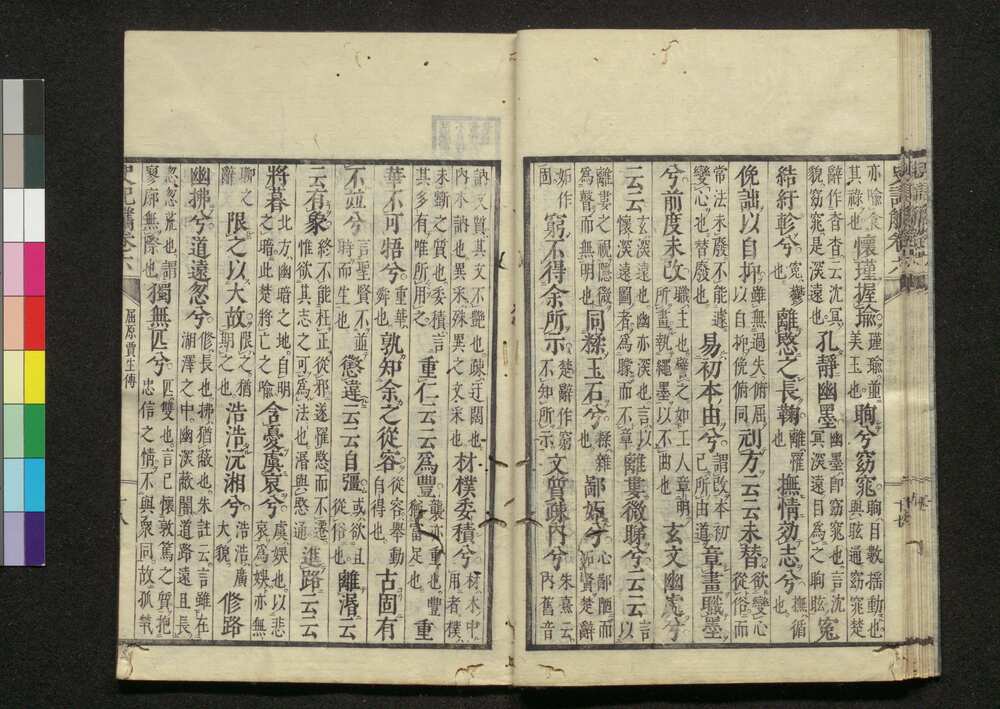 亦喻食其祿也懷瑾握瑜瑾瑜重美玉也眴兮窈窕眴目數搖動也與眩通窈窕楚
辭作杳杳云沈冥貌窈窕是深遠也孔靜幽墨幽墨即窈窕也言沈冥深遠目爲之眴眩寃
結紆軫兮寃鬱也離愍之長鞠離罹也撫情効志兮撫循也
俛詘以自抑雖無過失俯屈以自抑俛俯同刓方云云未替欲變心從俗而
常法未廢不能遽變心也替廢也易初本由兮謂改本初己所由道章畫職墨
兮前度未改職主也譬之如工人章明所畫執繩墨以不曲也玄文幽處兮
云云玄深遠也幽亦深也言以懷深遠圖者爲矇而不章離婁微睇兮云云言以
離婁之視隱微爲瞽而無明也同糅玉石兮糅雜也鄙妒兮心鄙陋而妬賢楚辭
妬作固窮不得余所示楚辭作窮不知所示文質疎内兮朱熹云内舊音
訥文質其文不艷也疎迂闊也内木訥也異采殊異之文采也材樸委積兮材木中用者樸
未斲之質也委積言其多有唯所用之重仁云云爲豐襲亦重也豐猶富足也重
華不可牾兮重華舜也孰知余之從容從容舉動自得也古固有
不竝兮言聖賢不竝時而生也懲違云云自彊或欲且從俗也離湣云
云有象終不能杜正從邪遂罹愍而不遷惟欲其志之可爲法也湣與愍通進路云云
將暮北方幽暗之地自明之暗此楚將亡之喻含憂虞哀兮虞娛也以悲哀爲娛亦無
聊之辭限之以大故限之猶期之也浩浩沅湘兮浩浩廣大貌修路
幽拂兮道遠忽兮修長也拂猶蔽也朱註云言雖在湘澤之中幽深蔽闇道路遠且長
忽忽荒也謂寥廓無際也獨無匹兮匹雙也言己懷敦篤之質抱忠信之情不與衆同故孤煢
史記觿卷六
屈原賈生傳
十八